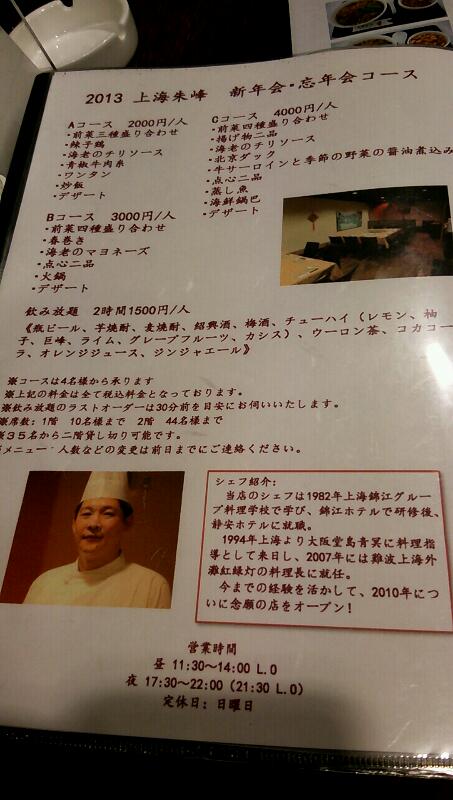 2013 上海朱峰 新年会・忘年会コース
Aコース 2000円/人
・前菜三種盛り合わせ
・辣子鶏
・海老のチリソース
・青椒牛肉糸
・ワンタン
・炒飯
・デザート
Bコース 3000円/人
・前菜四種盛り合わせ
・春巻き
・海老のマヨネーズ
・点心二品
・火鍋
・デザート
Cコース 4000円/人
・前菜四種盛り合わせ
・揚げ物二品
・海老のチリソース
・北京ダック
・牛サーロインと季節の野菜の醤油煮込み
・点心二品
・蒸し魚
・海鮮鍋巴
・デザート
飲み放題 2時間1500円/人
《瓶ビール、芋焼酎、麦焼酎、紹興酒、梅酒、チューハイ（レモン、柚
子、巨峰、ライム、グレープフルーツ、カシス）、ウーロン茶、コカコー
ラ、オレンジジュース、ジンジャエール》
※コースは4名様から承ります
※上記の料金は全て税込料金となっております。
※飲み放題のラストオーダーは30分前を目安にお伺いいたします。
※席数：1階 10名様まで 2階 44名様まで
※35名から二階貸し切り可能です。
※メニュー・人数などの変更は前日までにご連絡ください。
シェフ紹介：
当店のシェフは1982年上海錦江グルー
プ料理学校で学び、錦江ホテルで研修後、
静安ホテルに就職。
1994年上海より大阪堂島青冥に料理指
導として来日し、2007年には難波上海外
灘紅緑灯の料理長に就任。
今までの経験を活かして、2010年につ
いに念願の店をオープン！
営業時間
昼 11:30～14:00 L.O
夜 17:30～22:00 (21:30 L.O)
定休日：日曜日